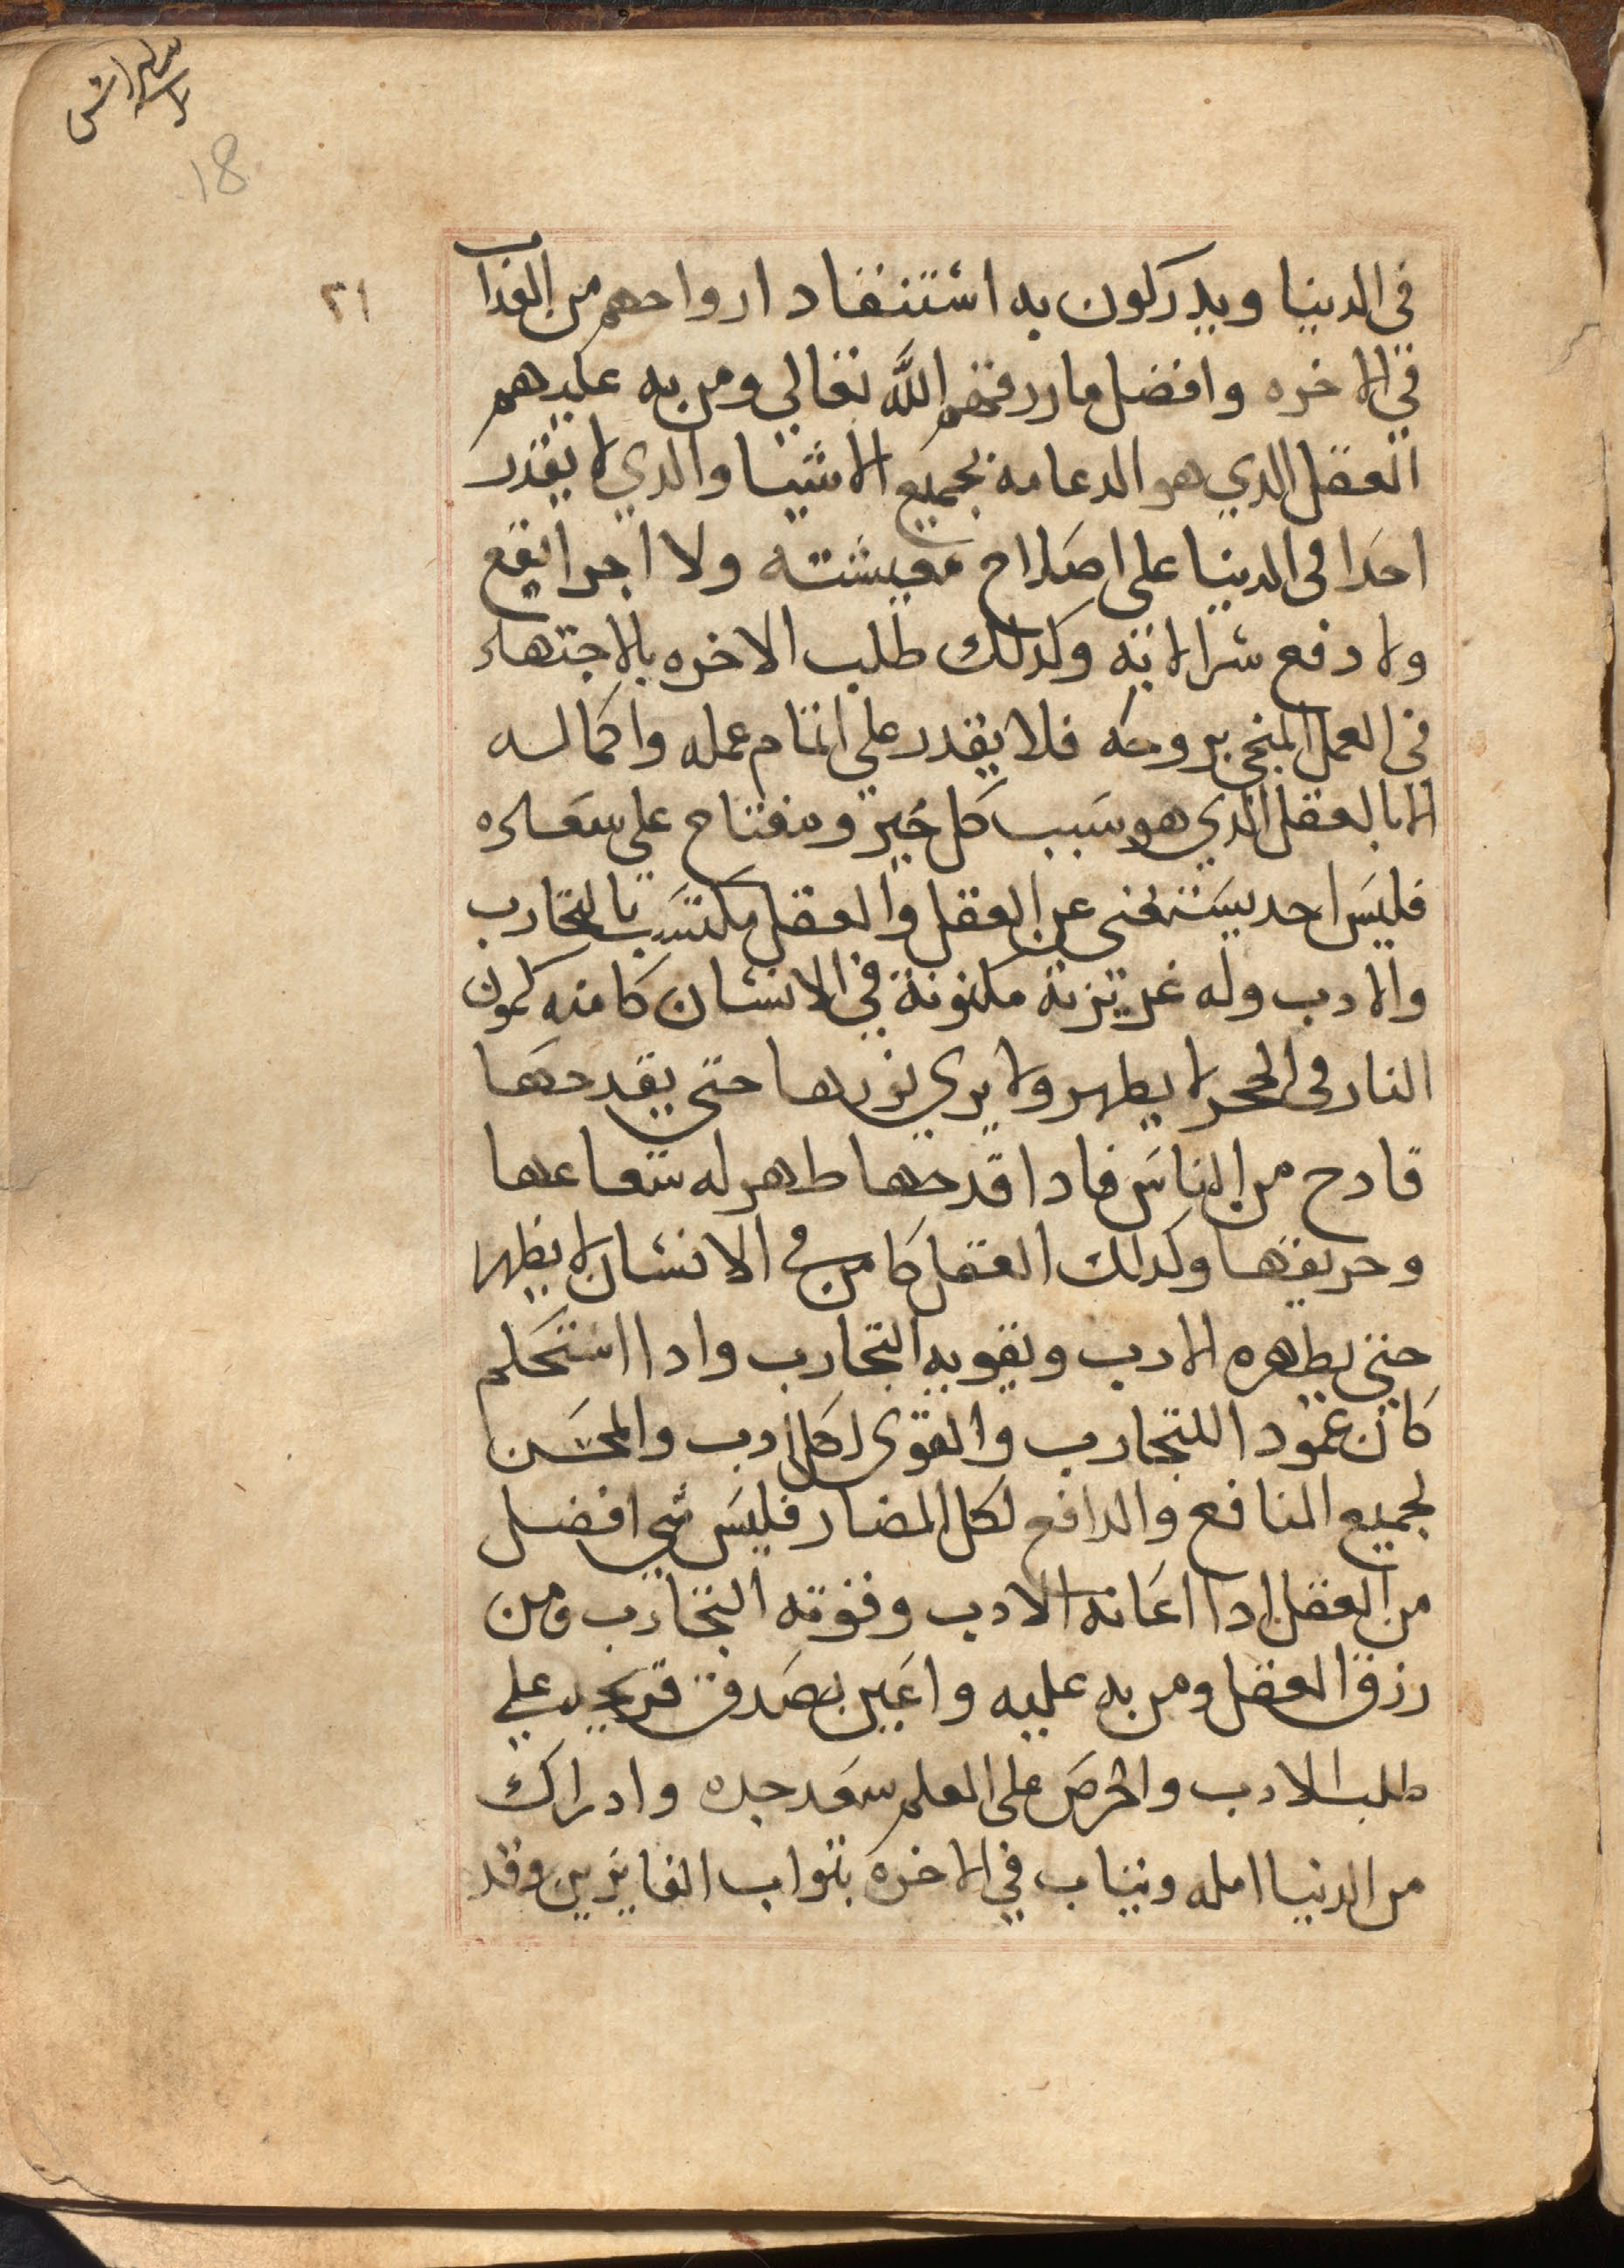 18
٢١
في الدينا ويدركون به استنفاد ارواحهم من العداب
في الاخره وافضل ما رزقهم الله تعالي ومن به عليهم
العقل الدي هو الدعامه لجميع الاشيا والدي لا يقدر
احدا في الدينا على اصلاح معيشته ولا اجرا نفع
ولا دفع شر الا به وكدلك طلب الاخره بالاجتهاد
في العمل المنجي بروحه فلا يقدر علي اتمام عمله واكماله
الا بالعقل الذي هو سَبب كل خير ومفتاح علي سعاده
فليسَ احد يستغني عن العقل والعقل مكتسَب بالتجارب
والادب وله غريزة مكنونة في الانسان كامنه كمون
النار في الحجر لا يطهر ولا يري نورها حتى يقدحها
قادح من الناسَ فادا قدحها طهر له شعاعها
وحريقها وكدلك العقل كامن في الانسان لا يظهر
حتى يطهره الادب وتقويه التجارب وادا استحكم
كان عمودا للتجارب والقوى لكل ادب والمحسَن
لجميع المنافع والدافع لكل المضار فليسَ شي افضل
من العقل ادا اعَانه الادب وقوته التجارب ومن
رزق العقل ومن به عليه واعَين بصَدق قريحه علي
طلب الادب والحرصَ على العلم سعَد جده وادراك
من الدنيا امله ويثاب في الاخره بثواب الفايزين وقد